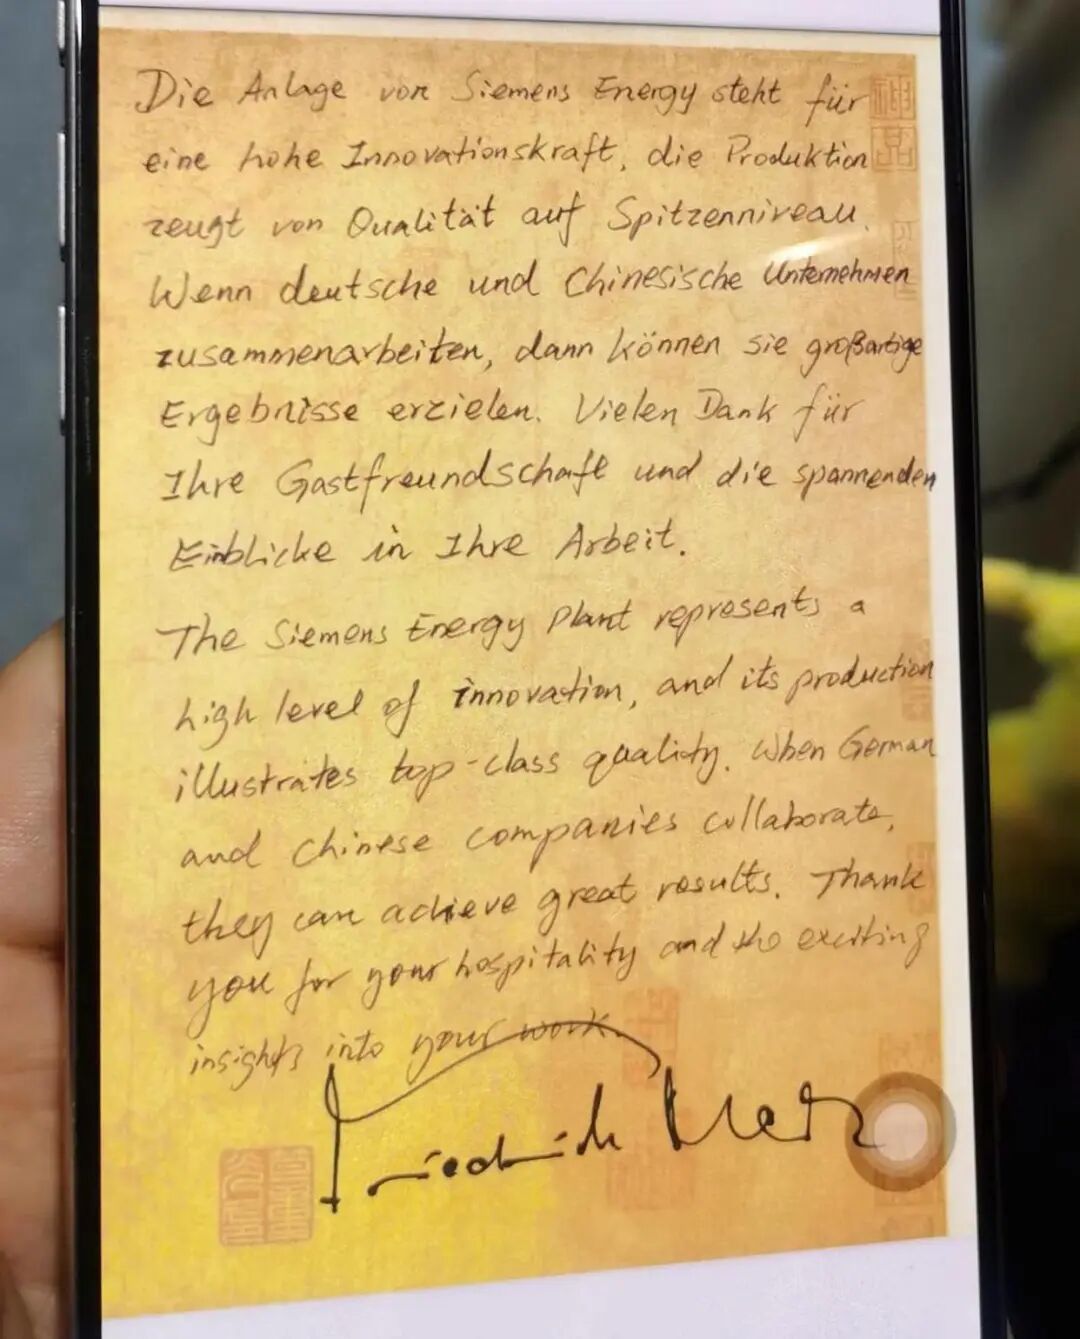 Die Anlage von Siemens Energy steht für
eine hohe Innovationskraft, die Produktion
zeugt von Qualität auf Spitzenniveau.
Wenn deutsche und Chinesische Unternehmen
zusammenarbeiten, dann können sie großartige
Ergebnisse erzielen. Vielen Dank für
Ihre Gastfreundschaft und die spannenden
Einblicke in Ihre Arbeit.
The Siemens Energy Plant represents a
high level of innovation, and its production
illustrates top-class quality. When German
and Chinese companies collaborate,
they can achieve great results. Thank
you for your hospitality and the exciting
insights into your work.
Friedrich Merz